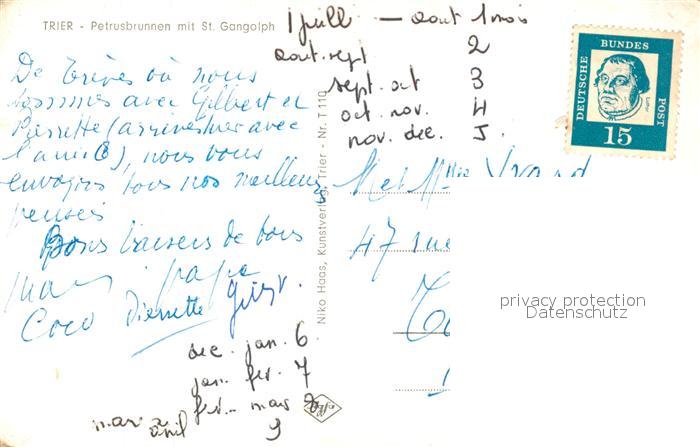 TRIER - Petrusbrunnen mit St. Gangolph
1 juill — aout 1 mois
aout. sept 2
sept. oct 3
oct. nov. 4
nov. dec. 5.
De Trèves où nous
sommes avec Gilbert et
Pierrette (arrivés hier avec
l'ami), nous vous
envoyons tous nos meilleurs
pensées
Bons baisers de tous
papa
Coco Pierrette
dec. jan. 6
jan. fev. 7
fev. mars 8
mars
avril 9
Niko Haas, Kunstverlag, Trier - Nr. T 110
Agfa
DEUTSCHE BUNDES POST
Luther
15
M et Mme
47 rue
privacy protection
Datenschutz